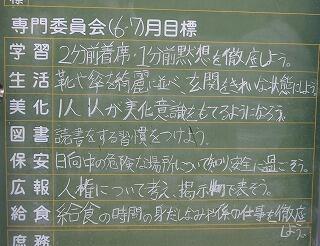 標
専門委員会(6・7)月目標
学習 2分前着席・1分前黙想を徹底しよう。
生活 靴や傘を綺麗に並べ、玄関をきれいな状態にしよう
美化 1人1人が美化意識をもてるようになろう。
図書 読書をする習慣をつけよう。
保安 日向中の危険な場所について知り安全に過ごそう。
広報 人権について考え、掲示物で表そう。
給食 給食の時間の身だしなみや係の仕事を徹底しよう。
庶務